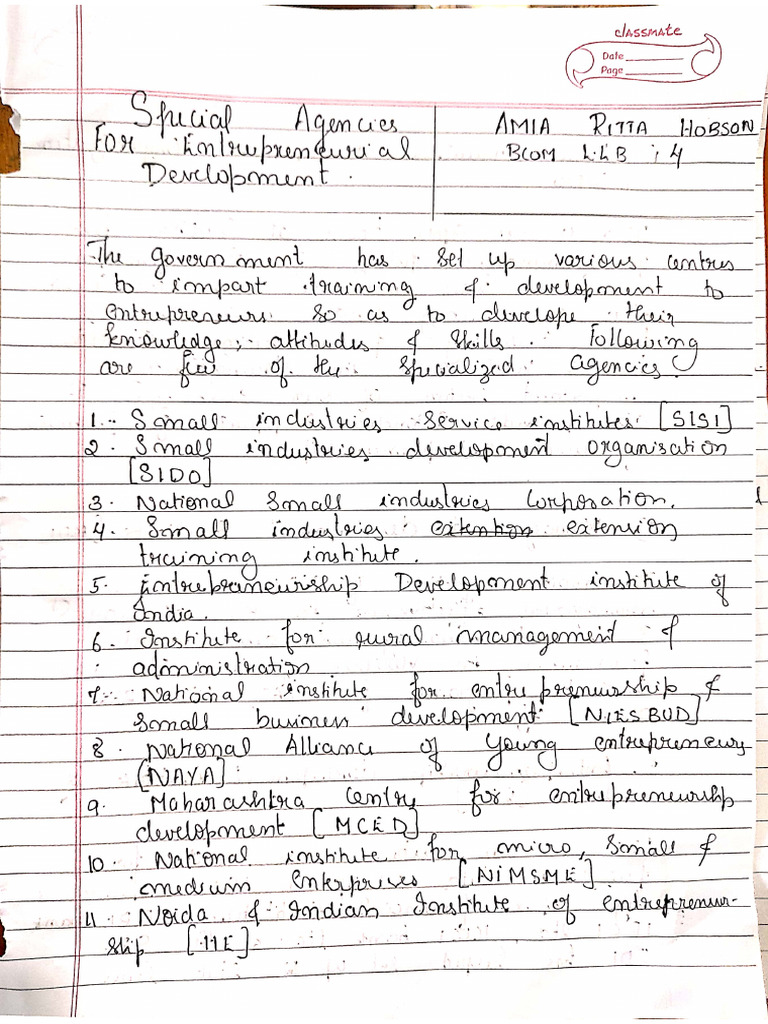 classmate
Date
Page
Special Agencies
For Entrepreneurial
Development.
AMIA RITTA HOBSON
BCOM L.L.B ; 4
The government has set up various centres
to impart training & development to
entrepreneurs so as to develope their
knowledge, attitudes & skills. Following
are few of the specialized agencies.
1. Small industries service institutes [SISI]
2. Small industries development organisation
[SIDO]
3. National Small industries Corporation.
4. Small industries extention extension
training institute.
5. Entrepreneurship Development institute of
India.
6. Institute for rural management &
administration
7. National institute for entrepreneurship &
small business development [NIESBUD]
8. National Alliance of Young entrepreneurs
[NAYA]
9. Maharashtra Centre for entrepreneurship
development [MCED]
10. National institute for micro, small &
medium Enterprises [NiMSME]
11 Noida & Indian Institute of entrepreneur-
ship [IIE]